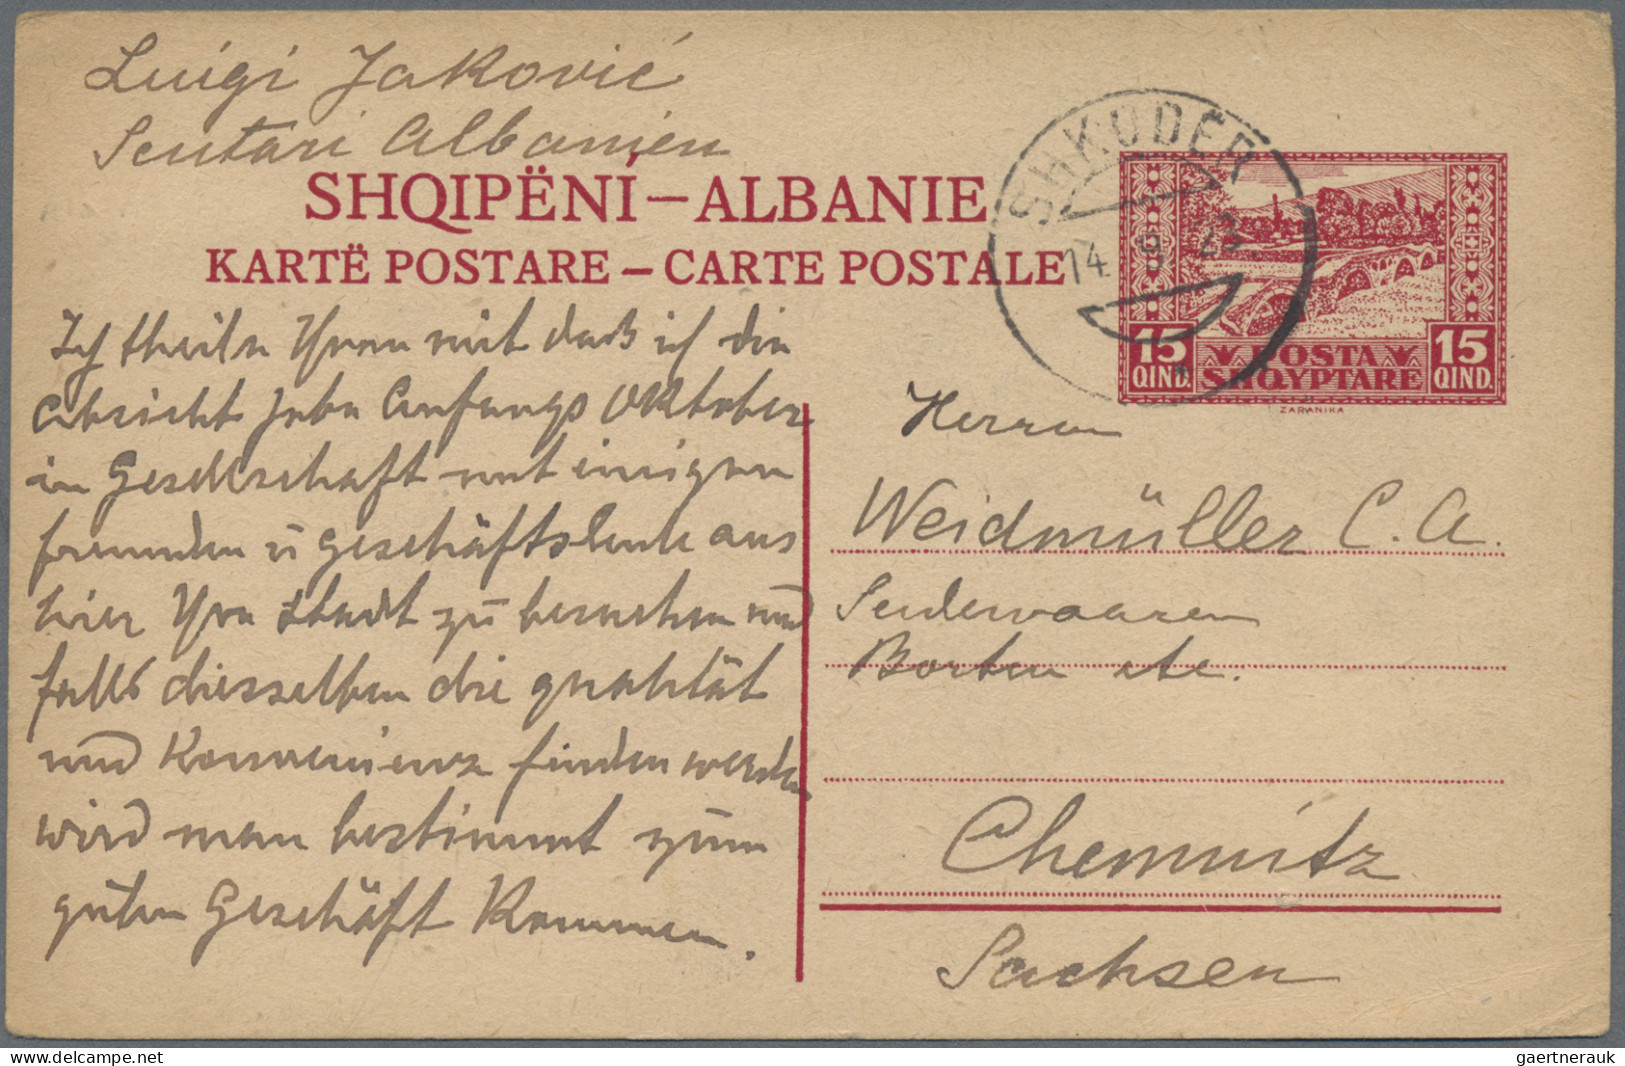 Luigi Jaković
Scutari Albanien
SHQIPËNI – ALBANIE
KARTË POSTARE – CARTE POSTALE
SHKODËR
14 9 23
15 QIND. POSTA SHQYPTARE 15 QIND.
ZARANIKA
Ich theile Ihnen mit daß ich die
Absicht habe Anfangs Oktober
in Gesellschaft mit einigen
freunden u Geschäftsleute aus
hier Ihre Stadt zu besuchen und
falls diesselben die qualität
und Konvenienz finden werden
wird man bestimmt zum
guten Geschäft Kommen.
Herren
Weidmüller C. A.
Seidewaaren
Borten etc.
Chemnitz
Sachsen
gaertnerauk